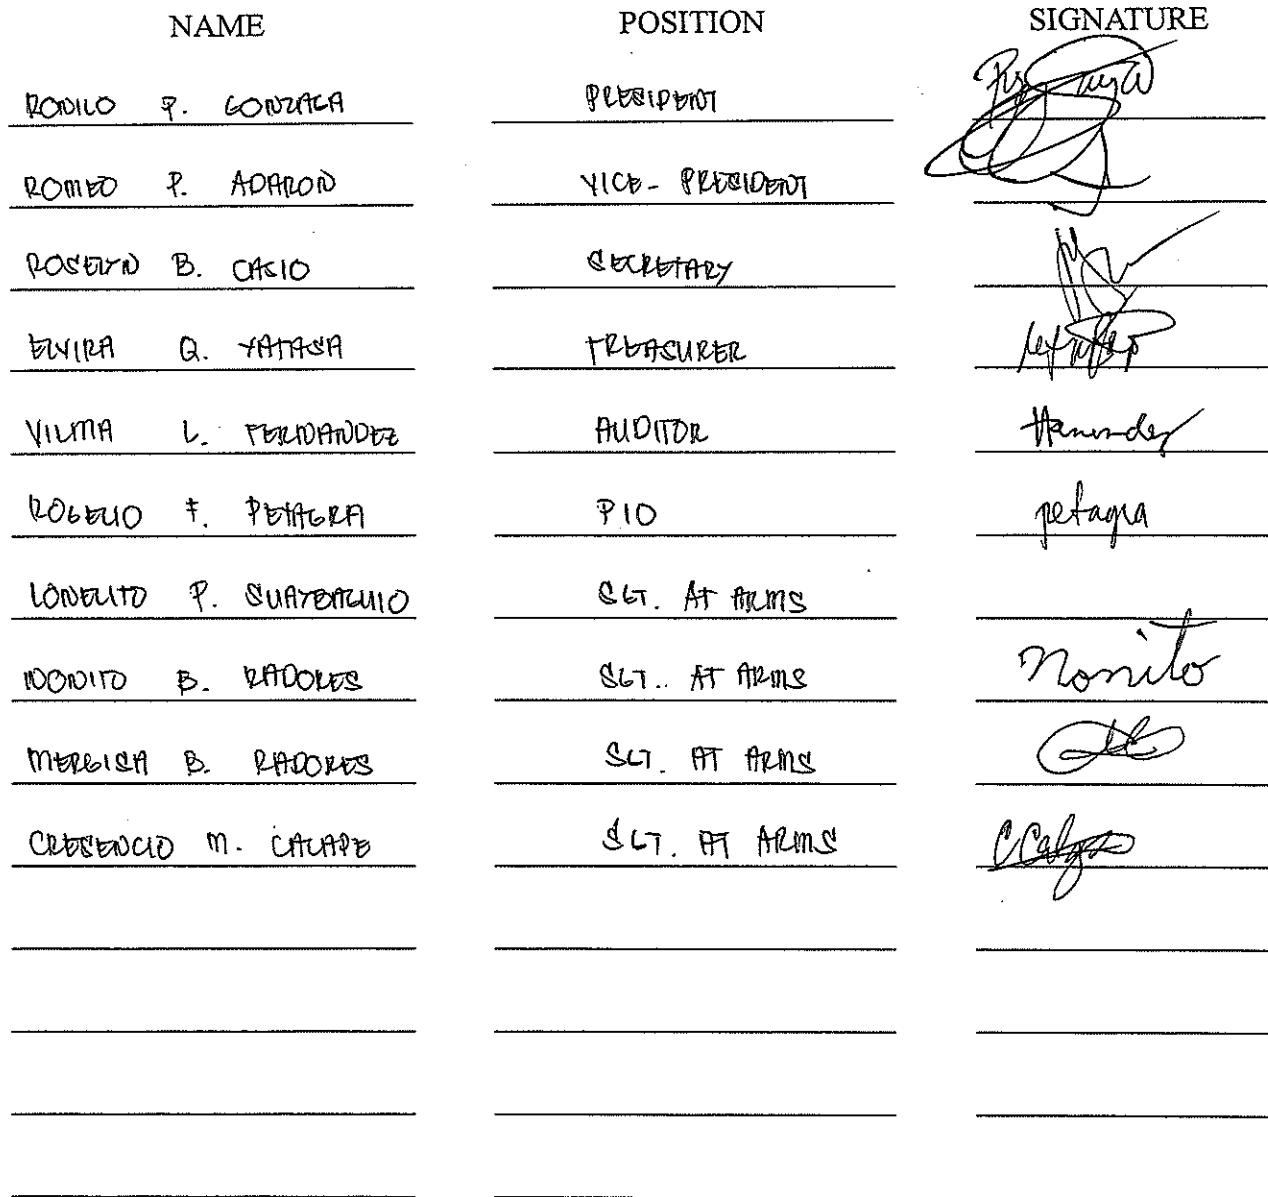 NAME POSITION SIGNATURE
RONILO P. GONZAGA PRESIDENT
ROMEO P. ADARON VICE- PRESIDENT
ROSELYN B. CASIO SECRETARY
ELVIRA Q. YATASA TREASURER
VILMA L. FERNANDEZ AUDITOR
ROGELIO F. PETAGRA PIO petagra
LONELITO P. SUAYBAGUIO SGT. AT ARMS
NONITO B. RADORES SGT.. AT ARMS Nonito
MERGISA B. RADORES SGT. AT ARMS
CRESENCIO M. CALAPE SGT. AT ARMS